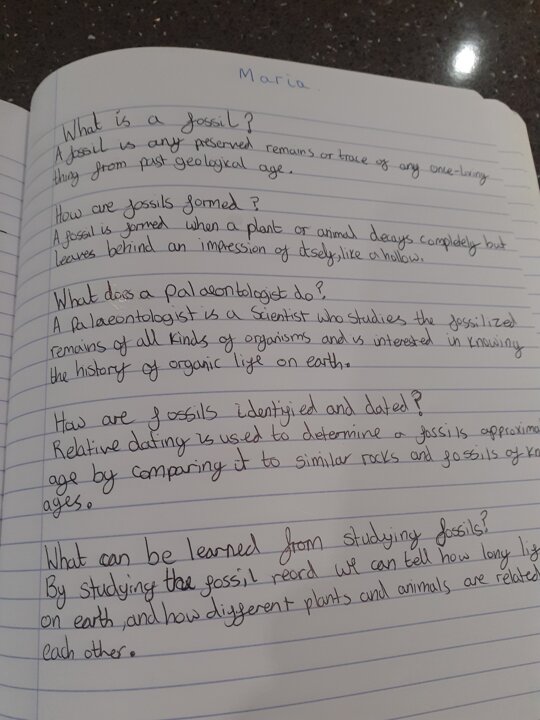 Maria.
What is a fossil?
A fossil is any preserved remains or trace of any once-living
thing from past geological age.
How are fossils formed?
A fossil is formed when a plant or animal decays completely but
leaves behind an impression of itsely, like a hollow.
What does a palaeontologist do?
A Palaeontologist is a scientist who studies the fossilized
remains of all kinds of organisms and is interested in knowing
the history of organic life on earth.
How are fossils identified and dated?
Relative dating is used to determine a fossils approxima
age by comparing it to similar rocks and fossils of kn
ages.
What can be learned from studying fossils?
By studying the fossil reord we can tell how long lif
on earth, and how different plants and animals are related
each other.